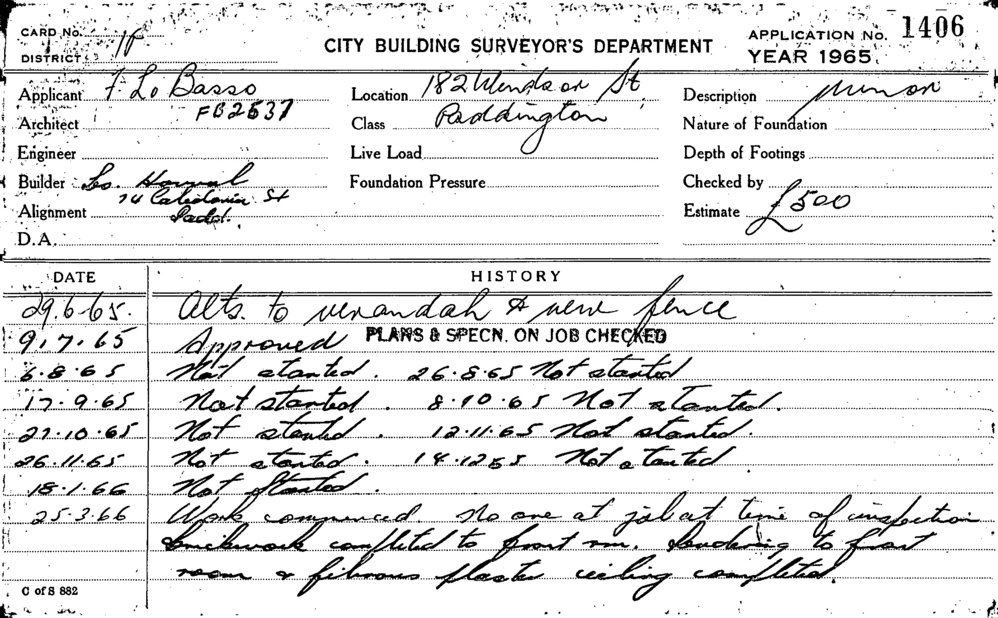 CARD No. 18
CITY BUILDING SURVEYOR'S DEPARTMENT
APPLICATION No. 1406
DISTRICT
YEAR 1965
Applicant F. Lo Basso Location 182 Windsor St Description Minor
FB2537
Architect Class Paddington Nature of Foundation
Engineer Live Load Depth of Footings
Builder Foundation Pressure Checked by
74 Caledonia St
Alignment Padd. Estimate £500
D.A.
DATE HISTORY
29.6.65. Alts. to verandah & new fence
9.7.65 Approved PLANS & SPECN. ON JOB CHECKED
6.8.65 Not started. 26.8.65 Not started
17.9.65 Not started. 8.10.65 Not started.
27.10.65 Not started. 12.11.65 Not started.
26.11.65 Not started. 14.12.65 Not started
18.1.66 Not Started.
25.3.66 Work commenced no one at job at time of inspection
Brickwork completed to front rm. Rendering to front
room & fibrous plaster ceiling completed.
C of S 882